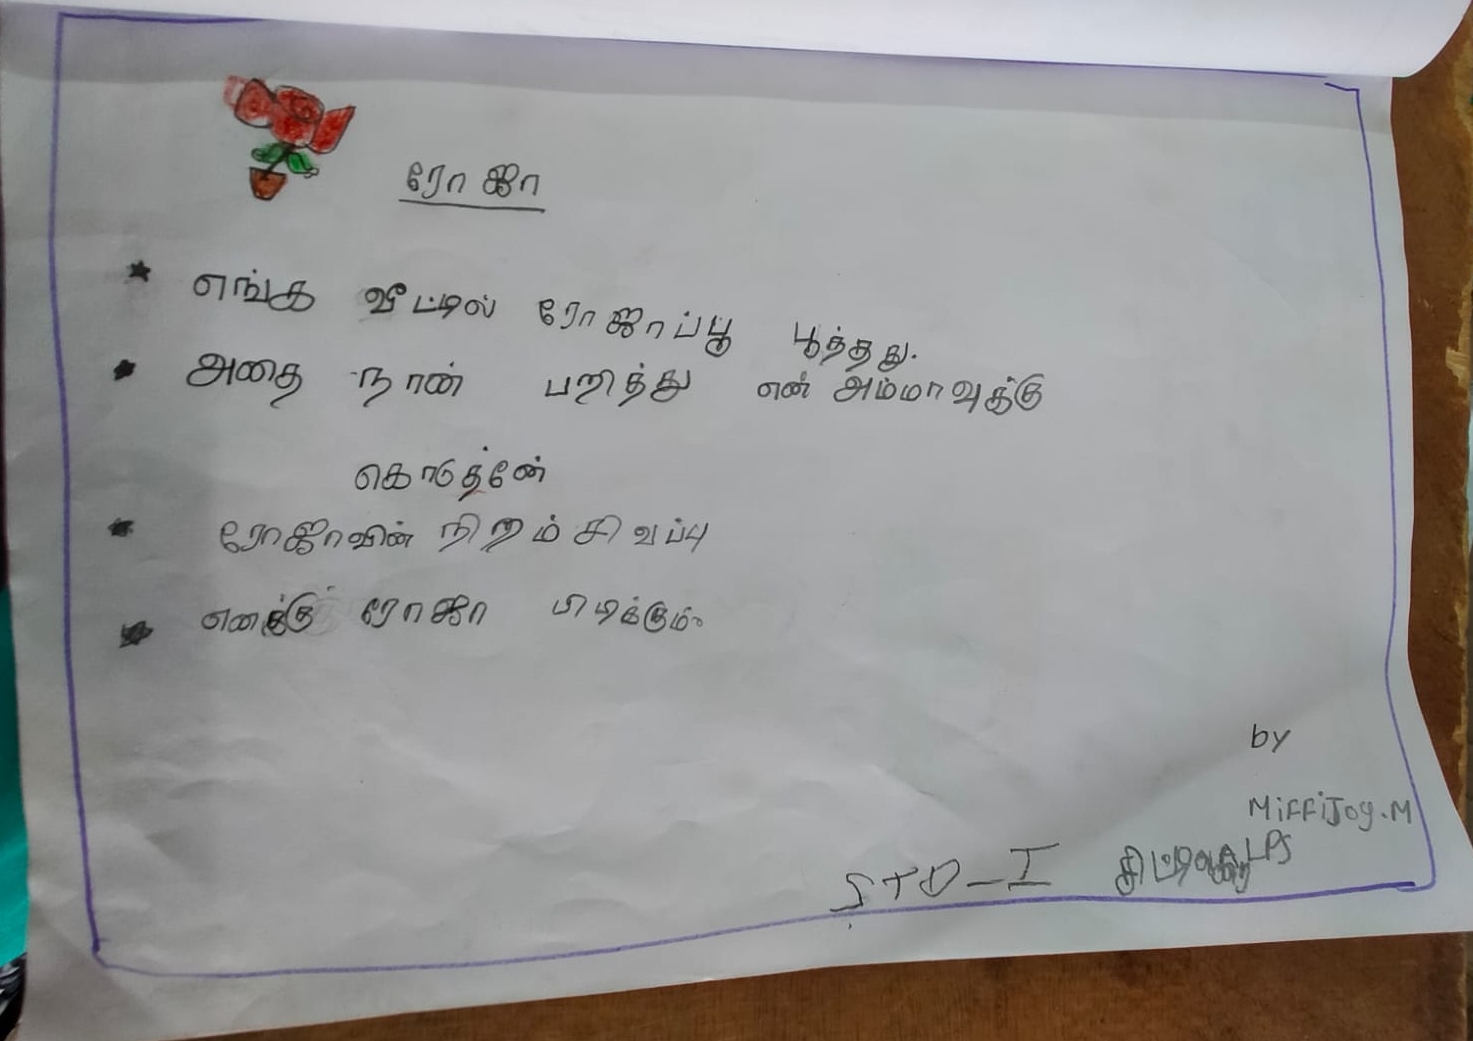 ரோஜா
* எங்க வீட்டில் ரோஜாப்பூ பூத்தது.
• அதை நான் பறித்து என் அம்மாவுக்கு
கொடுத்னேன்
• ரோஜாவின் நிறம் சிவப்பு
• எனக்கு ரோஜா பிடிக்கும்.
by
MiffiJoy.M
STD_I LPS